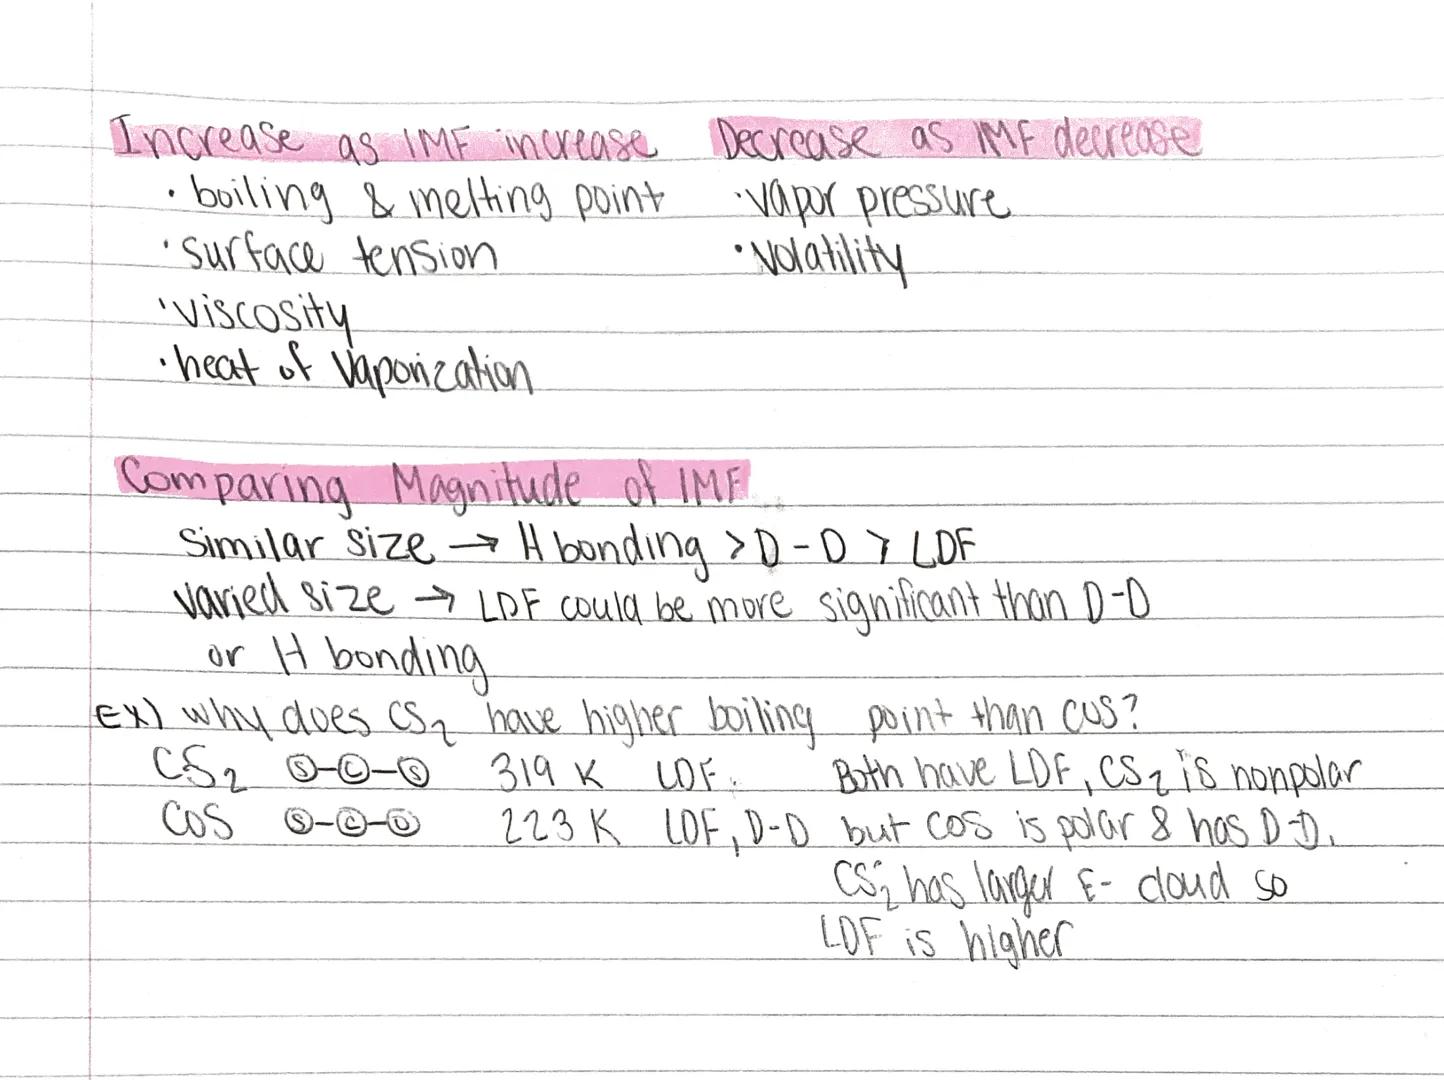 Increase as IMF increase
• boiling & melting point
• surface tension
• viscosity
• heat of vaporization
Decrease as IMF decrease
• vapor pressure
• volatility
Comparing Magnitude of IMF
Similar size → H bonding > D-D > LDF
varied size → LDF could be more significant than D-D
or H bonding
EX) why does CS₂ have higher boiling point than COS?
CS₂ S-C-S 319 K LDF
COS S-C-O 223 K LDF, D-D
Both have LDF, CS₂ is nonpolar
but COS is polar & has D-D.
CS₂ has larger E- cloud so
LDF is higher